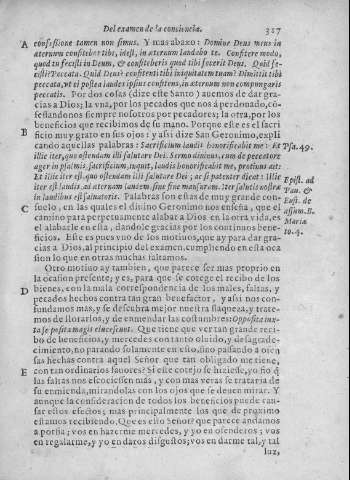 Del examen de la conciencia. 327
A confessione tamen non simus. Y mas abaxo: Domine Deus meus in
æternum confitebor tibi, idest, in æternum laudabo te. Confitere modo,
quod tu fecisti in Deum, & confiteberis quod tibi fecerit Deus. Quid fe-
cisti? Peccata. Quid Deus? confitenti tibi iniquitatem tuam? Dimittit tibi
peccata, vt ei postea laudes ipsius confitens, in æternum non compungaris
peccatis. Por dos cosas (dize este Santo) auemos de dar gra-
cias a Dios; la vna, por los pecados que nos à perdonado, cō-
fessandonos siempre nosotros por pecadores; la otra, por los
beneficios que recibimos de su mano. Porque este es el sacri
B ficio muy grato en sus ojos: y assi dize San Geronimo, expli
cando aquellas palabras: Sacrificium laudis honorificabit me: Et Psa. 49.
illic iter, quo ostendam illi salutare Dei. Sermo diuinus, cum de peccatore
ager in psalmis, sacrificium, inquit, laudis honorificabit me, protinus ait:
Et illic iter est, quo ostendam illi salutare Dei; ac si patenter dicat: Illic
iter est laudis ad æternam laudem sine fine mansuram. Iter salutis nostræ
in laudibus est saluatoris. Palabras son estas de muy grande con-
Epist. ad
Pau. &
Eust. de
assum. B.
Maria
to. 4.
C suelo, en las quales el diuino Geronimo nos enseña, que el
camino para perpetuamente alabar a Dios en la otra vida, es
el alabarle en esta, dandole gracias por los continuos bene-
ficios. Este es pues vno de los motiuos, que ay para dar gra-
cias a Dios, al principio del examen, cumpliendo en esta oca
sion lo que en otras muchas faltamos.
Otro motiuo ay tambien, que parece ser mas proprio en
la ocasion presente; y es, para que se coteje el recibo de los
D bienes, con la mala correspondencia de los males, faltas, y
pecados hechos contra tan gran benefactor, y assi nos con-
fundamos mas, y se descubra mejor nuestra flaqueza, y trate-
mos de llorarlos, y de emendar las costumbres: Opposita iux-
ta se posita magis elucescunt. Que tiene que ver tan grande reci-
bo de beneficios, y mercedes con tanto oluido, y desagrade-
cimiento, no parando solamente en esto, sino passando a ofen
sas hechas contra aquel Señor que tan obligado me tiene,
E con tan ordinarios fauores? Si este cotejo se hiziesse, yo fio q̄
las faltas nos escociessen más, y con mas veras se trataria de
su enmienda, mirandolas con los ojos que se deuen mirar. Y
aunque la consideracion de todos los beneficios puede cau-
sar estos efectos; mas principalmente los que de proximo
estamos recibiendo. Que es esto Señor? que parece andamos
a porfia; vos en hazerme mercedes, y yo en ofenderos; vos
en regalarme, y yo en daros disgustos; vos en darme tal, y tal
luz,